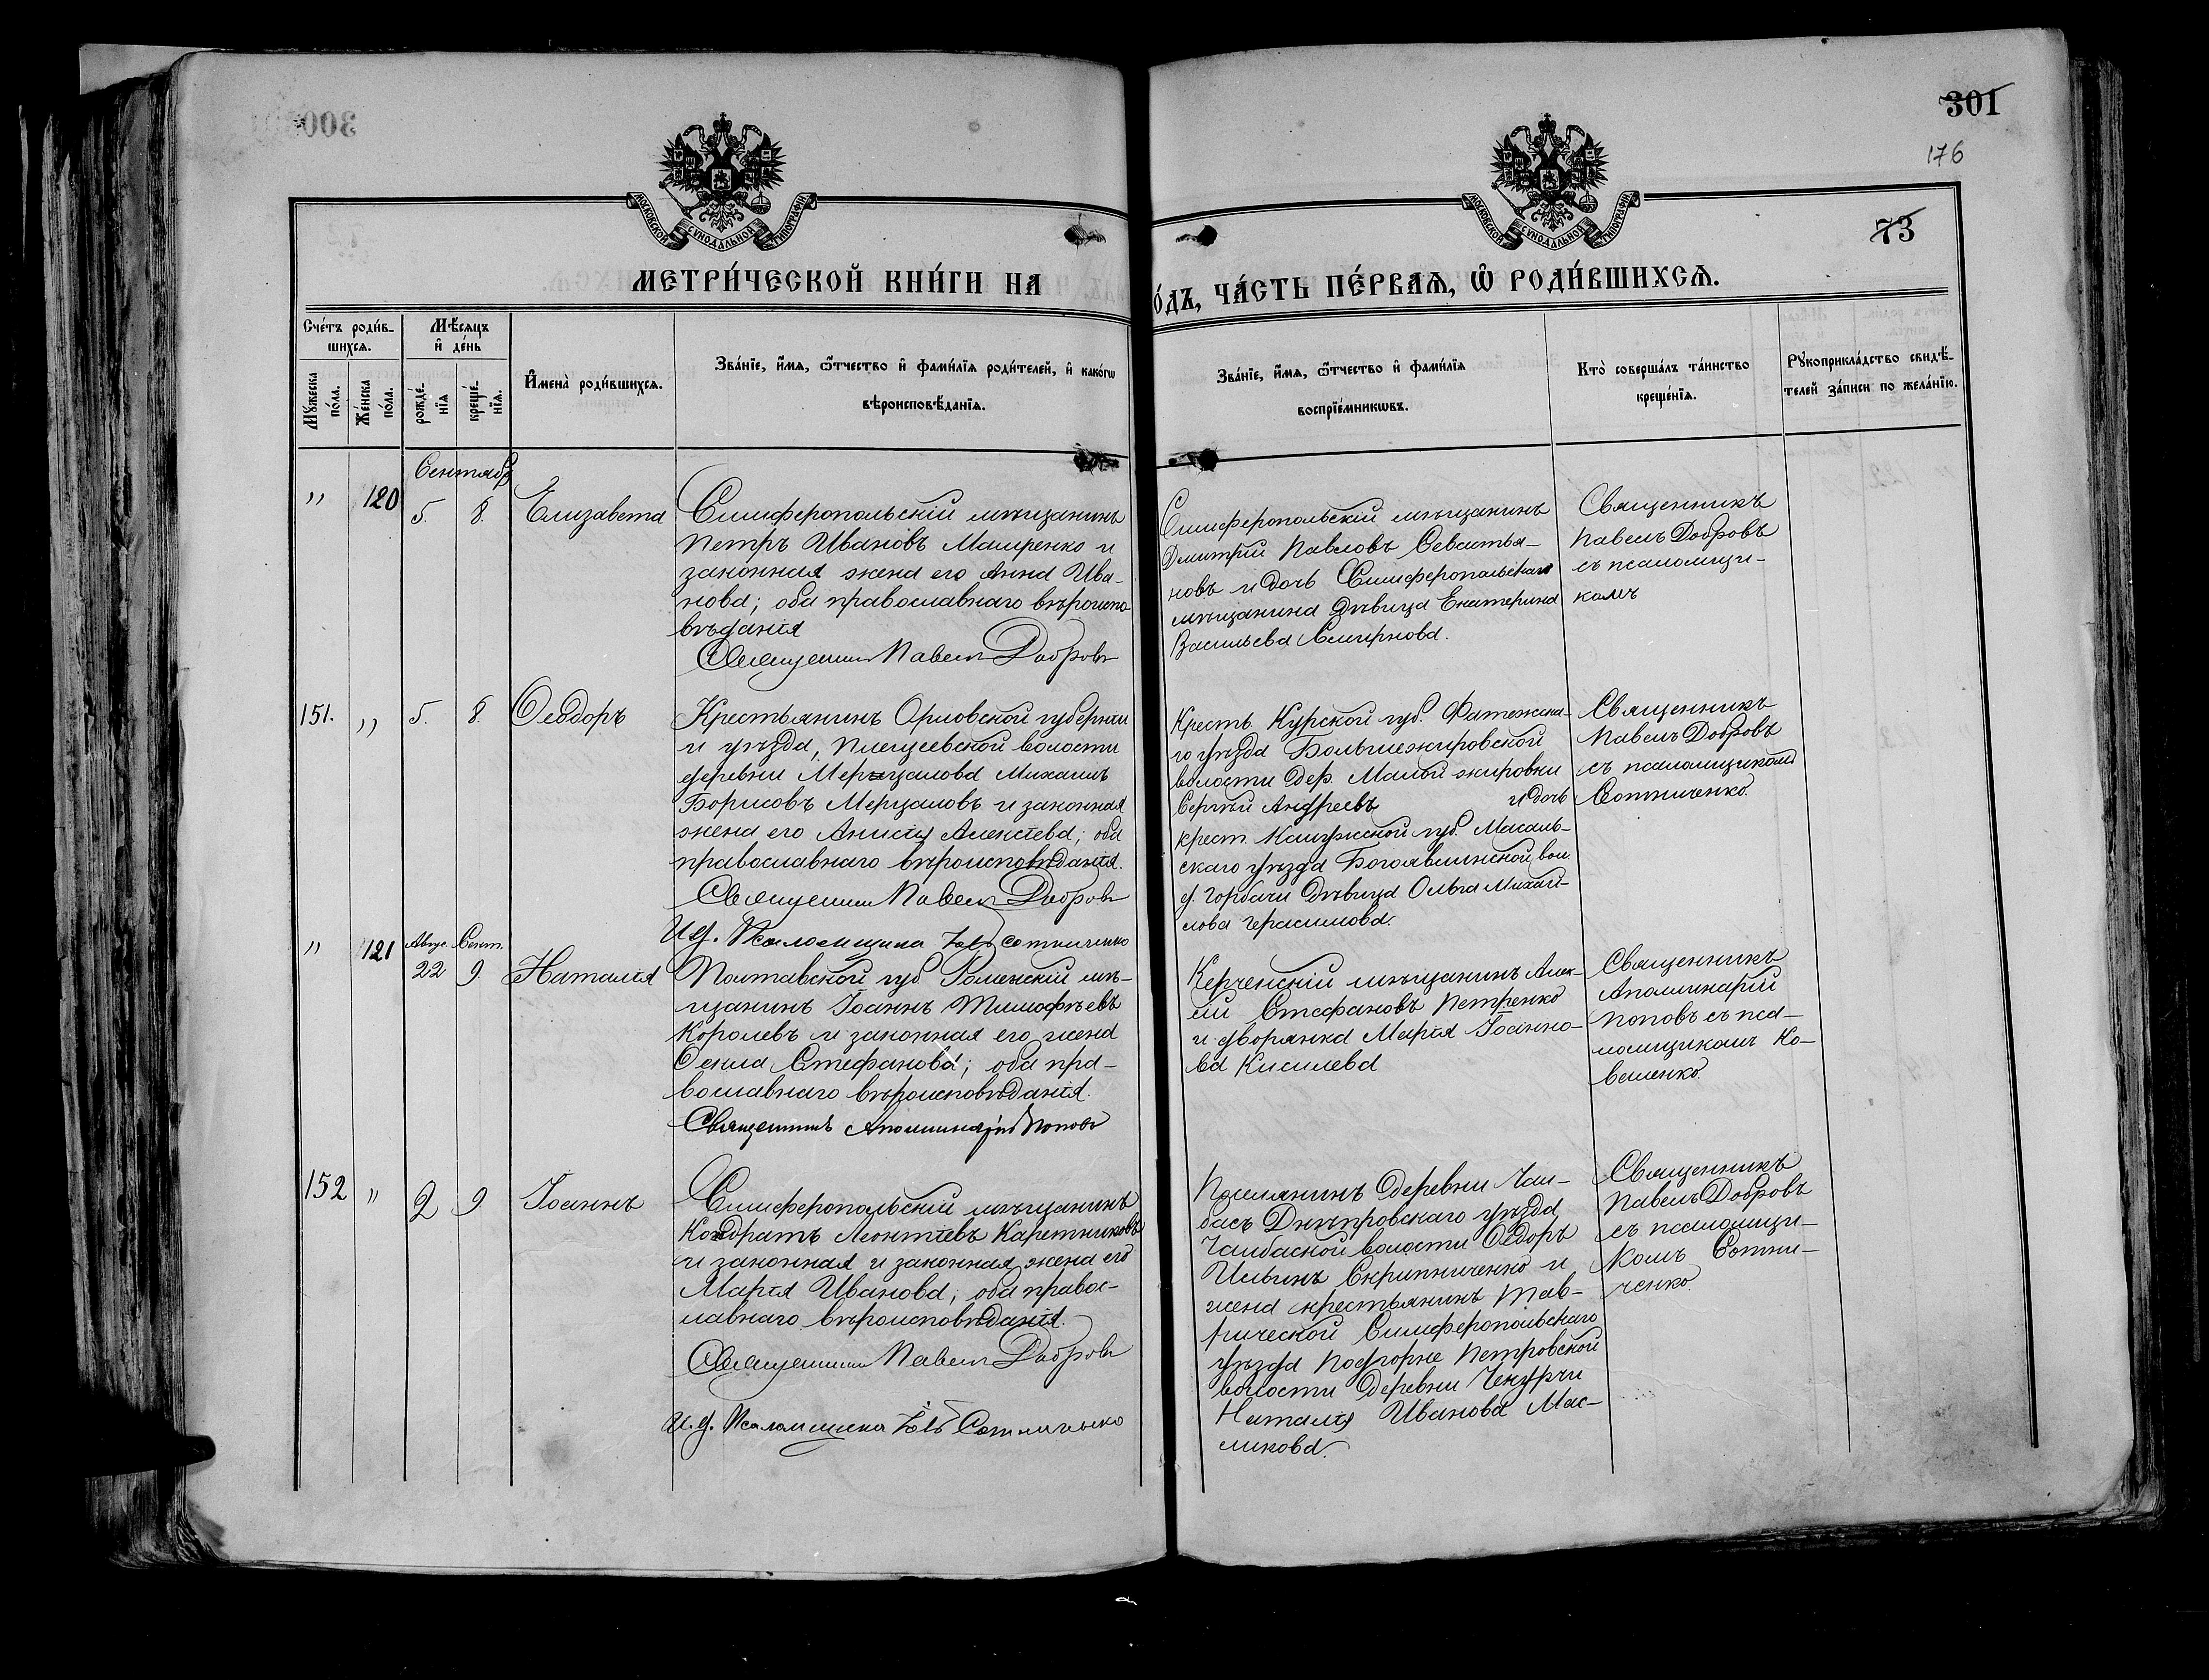 301
176
73
МОСКОВСКОЙ СѴНОДАЛЬНОЙ ТИПОГРАФІИ
МОСКОВСКОЙ СѴНОДАЛЬНОЙ ТИПОГРАФІИ
МЕТРИ́ЧЕСКОЙ КНИ́ГИ НА
О́ДЪ, ЧА́СТЬ ПЕ́РВАѦ, Ѡ҆ РОДИ́ВШИХСѦ.
Сче́тъ роди́в-
шихсѧ.
Мѣ́сѧцъ
и҆ де́нь
Мꙋ́жеска
по́ла.
Же́нска
по́ла.
рожде́-
нїѧ
креще́-
нїѧ.
И҆мена̀ роди́вшихсѧ.
Зва́нїе, и҆́мѧ, ѻ҆́тчество и҆ фами́лїѧ роди́телей, и҆ како́гѡ
вѣроисповѣ́данїѧ.
Зва́нїе, и҆́мѧ, ѻ҆́тчество и҆ фами́лїѧ
воспрїе́мникѡвъ.
Кто̀ соверша́лъ та́инство
креще́нїѧ.
Рꙋкоприкла́дство свидѣ́-
телей за́писи по жела́нїю.
Сентябр
" 120 5. 8. Елизавета
Симферопольскій мѣщанинъ
Петръ Ивановъ Мащенко и
законная жена его Анна Ива-
нова; оба православнаго вѣроиспо
вѣданія
Священник Павелъ Добровъ
Симферопольскій мѣщанинъ
Дмитрій Павловъ Севастья-
новъ и дочь Симферопольскаго
мѣщанина дѣвица Екатерина
Васильева Смирнова.
Священникъ
Павелъ Добровъ
съ псаломщи-
комъ
151. " 5. 8. Ѳеодоръ
Крестьянинъ Орловской губерніи
и уѣзда, Плещеевской волости
деревни Мерцалова Михаилъ
Борисовъ Мерцаловъ и законная
жена его Анисія Алексѣева; оба
православнаго вѣроисповѣданія.
Священник Павелъ Добровъ
И.д. Псаломщика Сотниченко
Крестъ. Курской губ. Фатежска-
го уѣзда Большежировской
волости дер. Малой жировки
Сергѣй Андреевъ и дочь
крест. Калужской губ. Масаль-
скаго уѣзда Богоявленской вол.
д. Горбачи дѣвица Ольга Михай-
лова Герасимова.
Священникъ
Павелъ Добровъ
съ псаломщикомъ
Сотниченко.
" 121 Авгус. Сент.
22 9. Наталія
Полтавской губ. Роменскій мѣ-
щанинъ Іоаннъ Тимофѣевъ
Королевъ и законная его жена
Ѳекла Стефанова; оба пра-
вославнаго вѣроисповѣданія.
Священникъ Аполлинарій Поповъ
Керченскій мѣщанинъ Алек-
ѣй Стефановъ Петренко
и дворянка Марія Іоанно-
ва Кисилева
Священникъ
Аполлинарій
Поповъ съ пса-
ломщикомъ Ко-
валенко.
152 " 2 9 Іоаннъ
Симферопольскій мѣщанинъ
Кондратъ Леонтіевъ Каретниковъ
и законная и законная жена его
Марія Иванова; оба правос-
лавнаго вѣроисповѣданія.
Священник Павелъ Добровъ
И.д. Псаломщика Сотниченко
Поселянинъ деревни Чал-
басъ Днѣпровскаго уѣзда
Чалбаской волости Ѳедоръ
Ильинъ Скрипниченко и
жена крестьянинъ Тав-
рической Симферопольскаго
уѣзда Подгорне Петровской
волости деревни Чекурчи
Наталія Иванова Мас-
ликова.
Священникъ
Павелъ Добровъ
съ псаломщи-
комъ Сотни-
ченко.